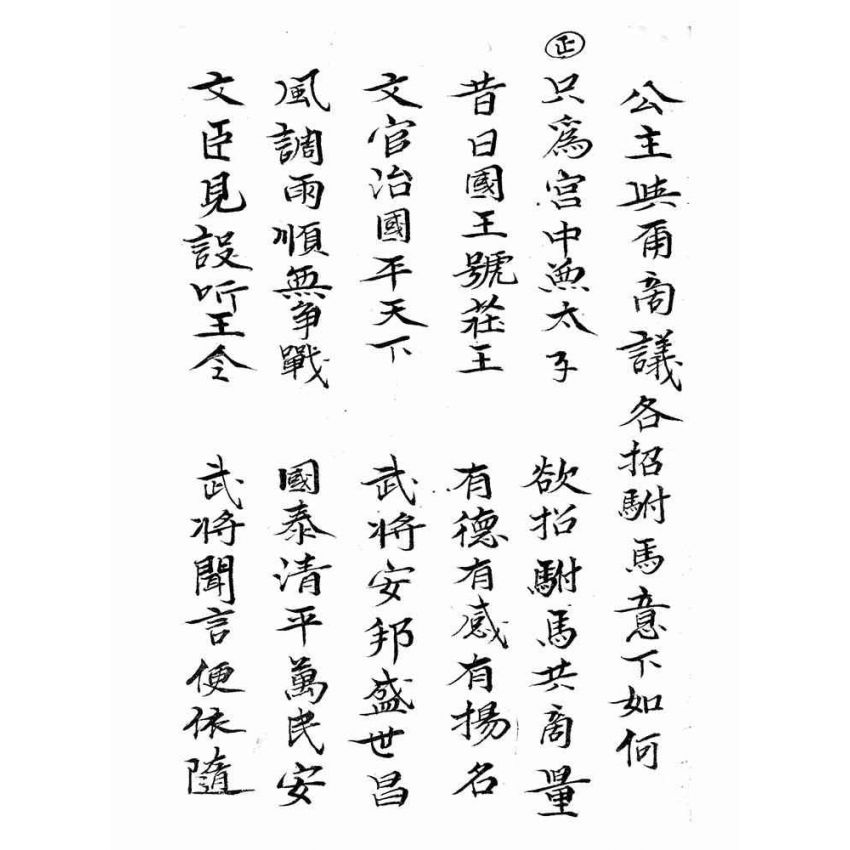 公主與爾商議各招駙馬意下如何
㊣只爲宮中無太子 欲招駙馬共商量
昔日國王號莊王 有德有感有揚名
文官治國平天下 武將安邦盛世昌
風調雨順無爭戰 國泰清平萬民安
文臣見設听王令 武將聞言便依隨